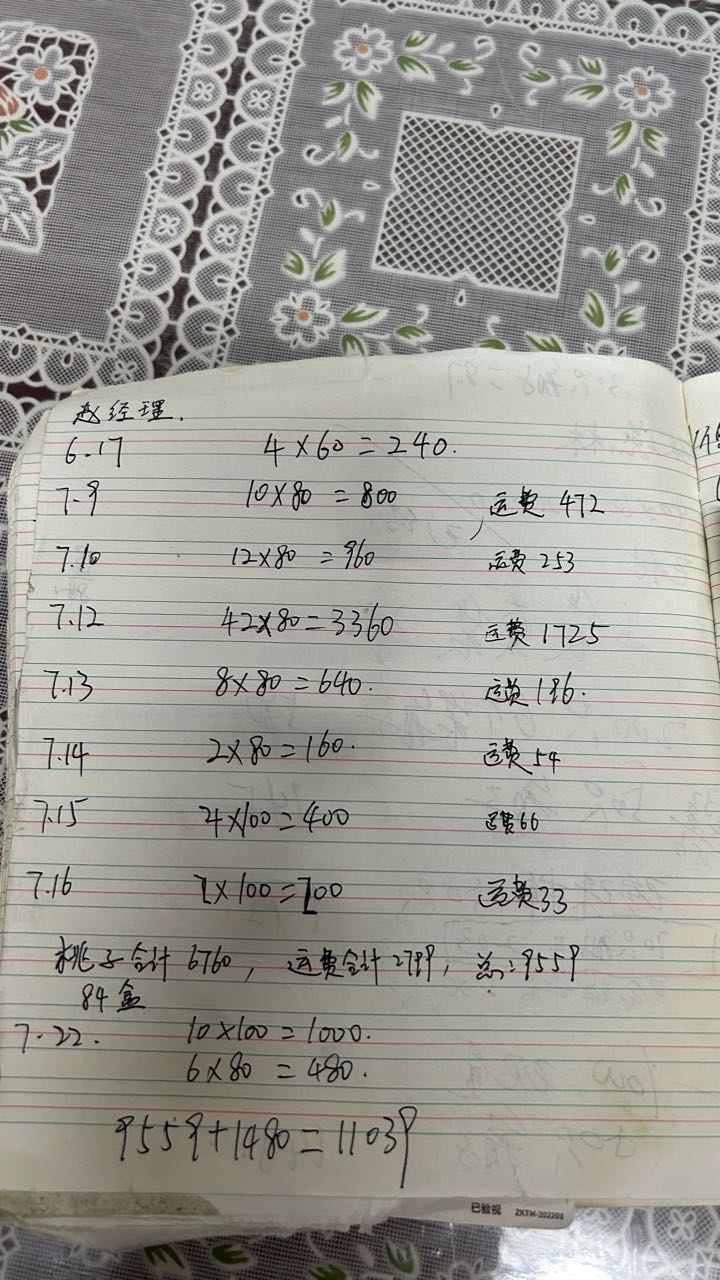 赵经理.
6.17 4×60=240.
7.9 10×80=800 运费 472
7.10 12×80=960 运费 253
7.12 42×80=3360 运费 1725
7.13 8×80=640. 运费 196.
7.14 2×80=160. 运费 54
7.15 4×100=400 运费 66
7.16 2×100=200 运费 33
桃子合计 6760, 运费合计 2799, 总:9559
84盒
7.22. 10×100=1000.
6×80=480.
9559+1480=11039
已验视 ZKTM-202201